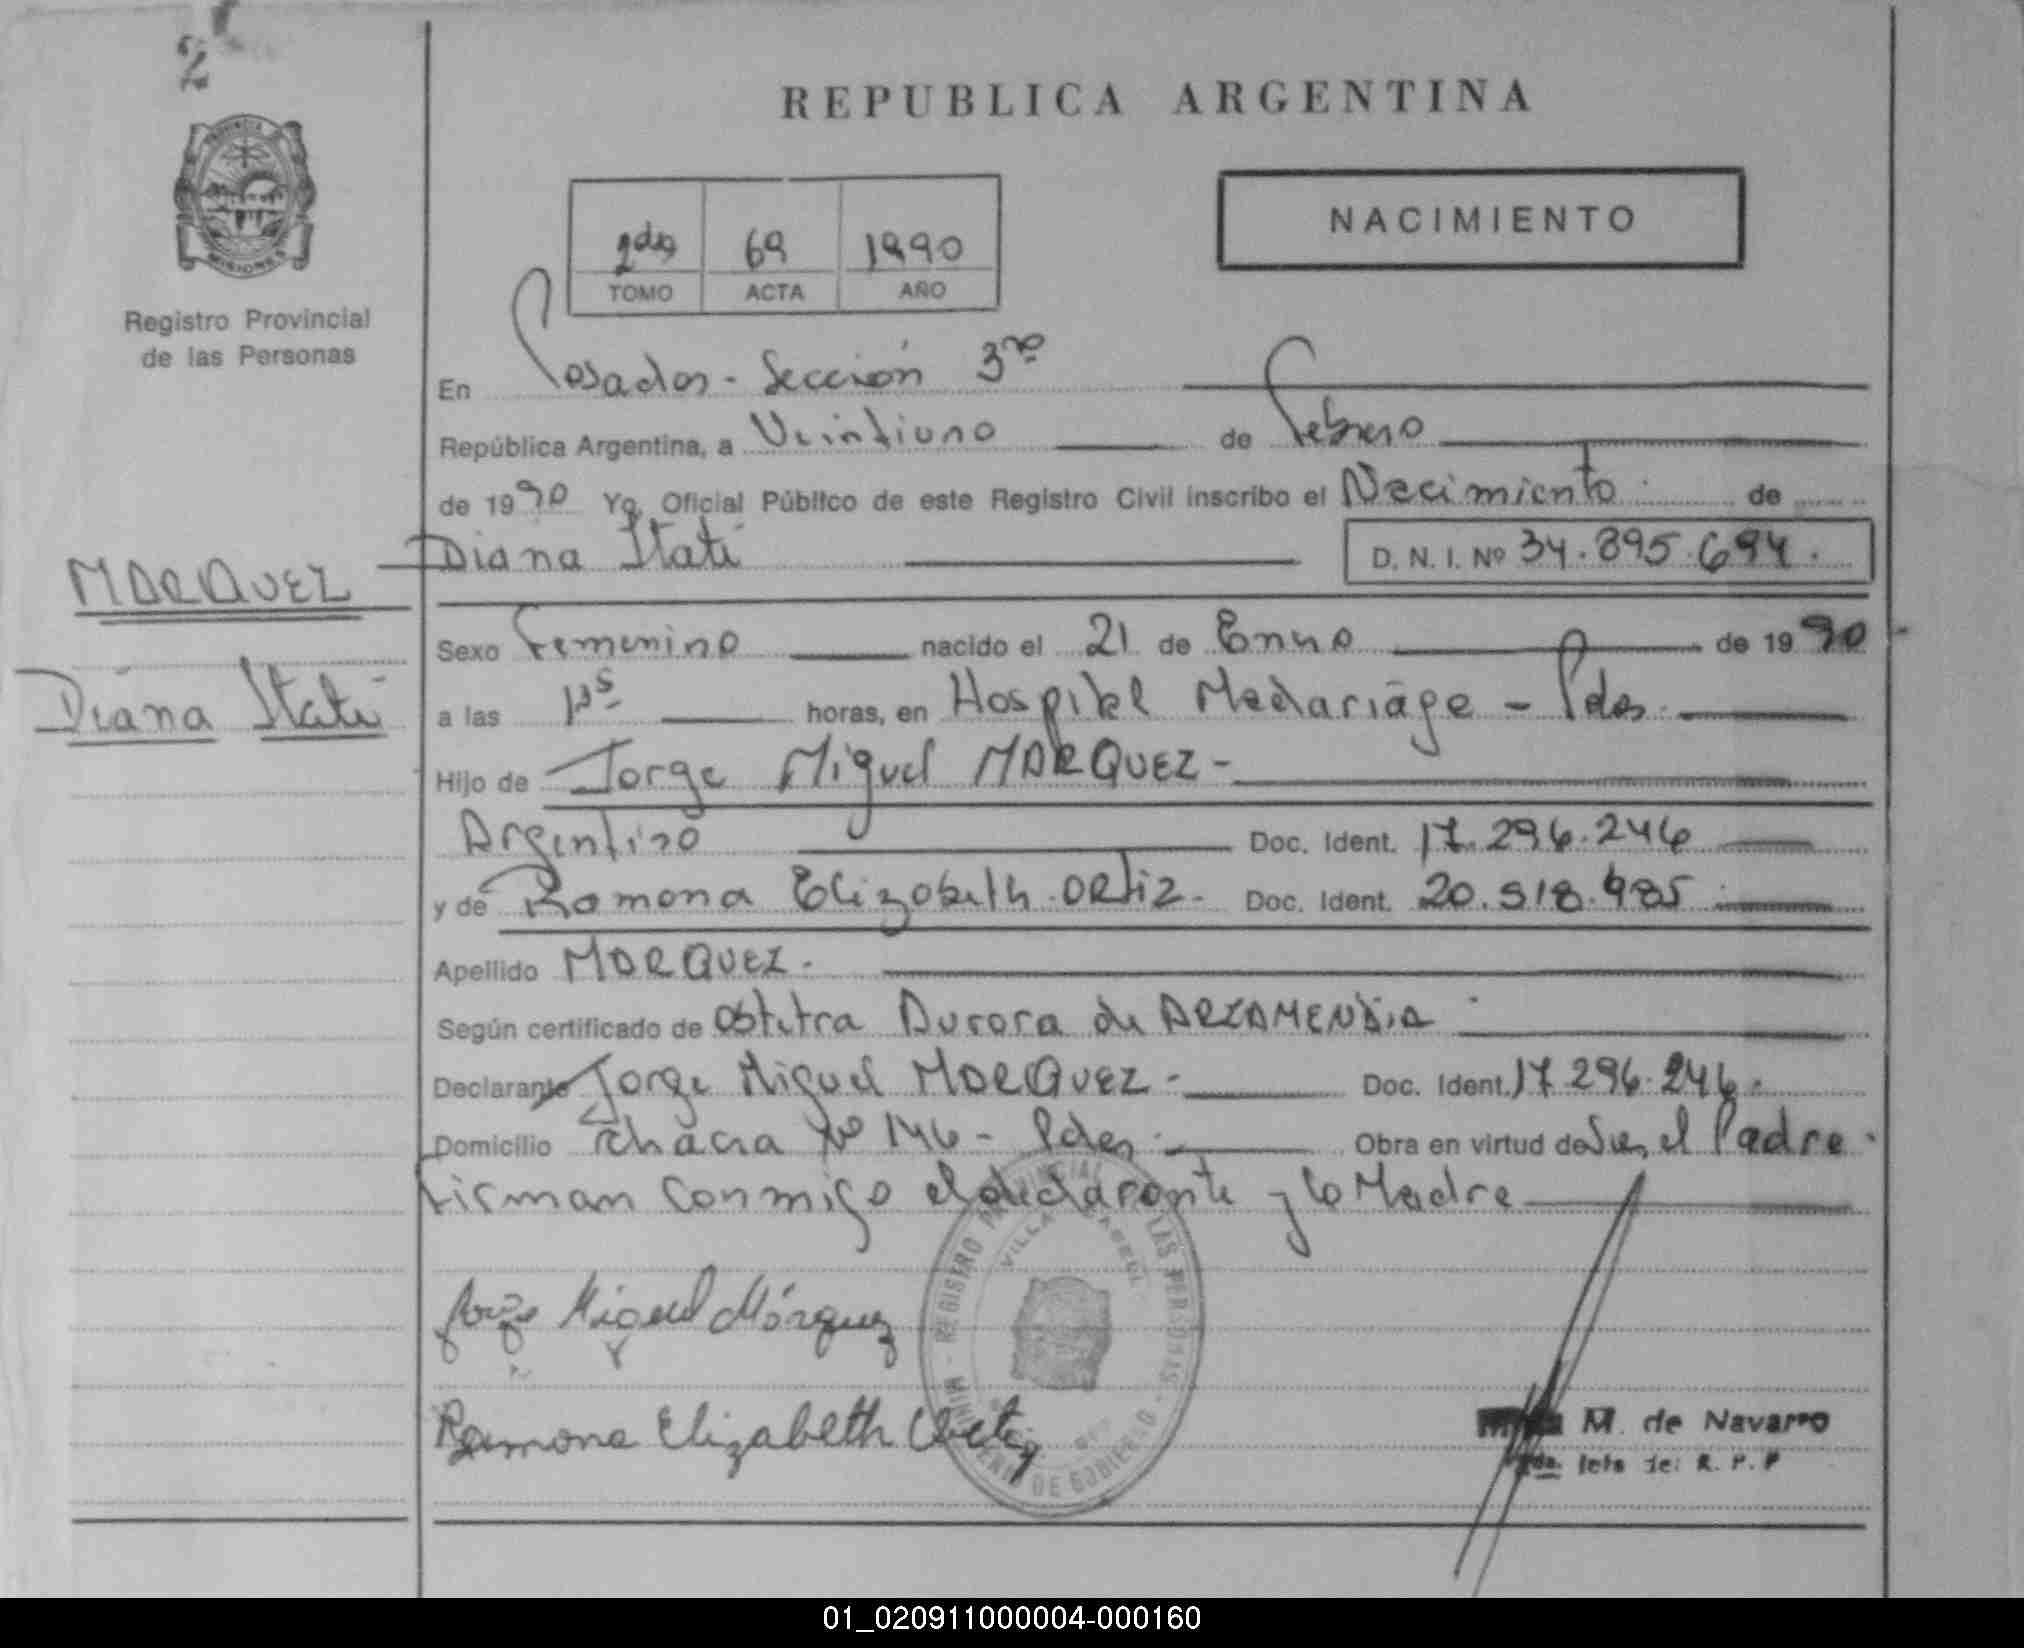 2
REPUBLICA ARGENTINA
PROVINCIA
MISIONES
Registro Provincial
de las Personas
2do 69 1990
TOMO ACTA AÑO
NACIMIENTO
En Posadas - Sección 3ra
República Argentina, a Veintiuno de Febrero
de 1990 Yo, Oficial Público de este Registro Civil inscribo el Nacimiento de
Diana Itatí D. N. I. Nº 34.895.694.
MARQUEZ
Diana Itatí
Sexo Femenino nacido el 21 de Enero de 1990
a las horas, en Hospital Madariaga - Pdas.
Hijo de Jorge Miguel MARQUEZ -
Argentino Doc. Ident. 17.296.246
y de Ramona Elizabeth ORTIZ - Doc. Ident. 20.518.985
Apellido MARQUEZ.
Según certificado de Obstetra Aurora de ARZAMENDIA
Declarante Jorge Miguel MARQUEZ - Doc. Ident. 17.296.246.
Domicilio Chacra Nº 146 - Pdas. Obra en virtud de Ser el Padre.
Firman conmigo el declarante y la Madre
REGISTRO PROVINCIAL DE LAS PERSONAS
VILLA CABELLO
MINISTERIO DE GOBIERNO
Jorge Miguel Márquez
Ramona Elizabeth Ortiz
M. de Navarro
R. P. P
01_020911000004-000160